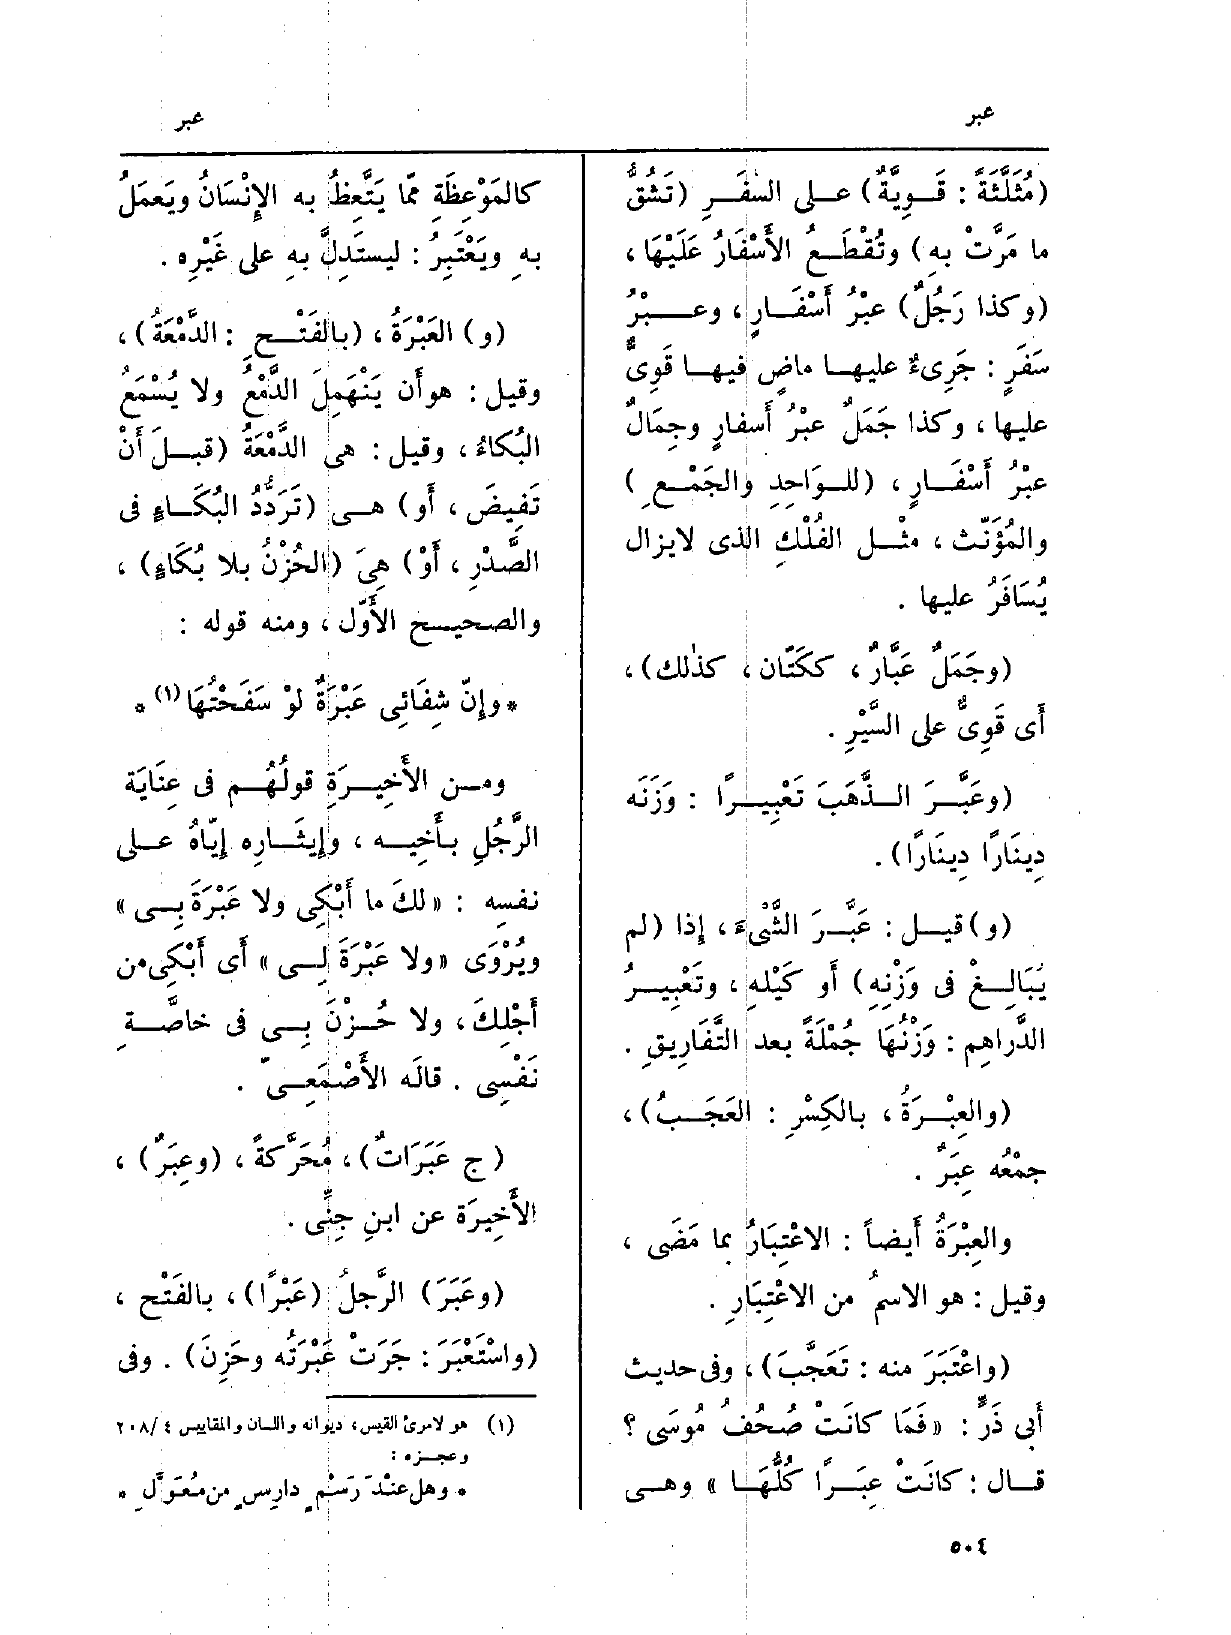 عبر
عبر
(مُثَلَّثَةً : قَوِيَّةٌ) على السَّفَرِ (تَشُقُّ
ما مَرَّتْ به) وتُقْطَعُ الأَسْفَارُ عَلَيْهَا،
(وكذا رَجُلٌ) عبْرُ أَسْفَارٍ، وعبْرُ
سَفَرٍ : جَرِىءٌ عليها ماضٍ فيها قَوِىٌّ
عليها، وكذا جَمَلٌ عبْرُ أَسفارٍ وجِمَالٌ
عبْرُ أَسْفَارٍ، (للوَاحِدِ والجَمْعِ)
والمُؤَنَّث، مثْل الفُلْكِ الذى لايزال
يُسَافَرُ عليها .
(وجَمَلٌ عَبَّارٌ، ككَتّان، كذٰلك)،
أَى قَوِىٌّ على السَّيْرِ .
(وعَبَّرَ الذَّهَبَ تَعْبِيرًا : وَزَنَه
دِينَارًا دِينَارًا) .
(و) قيل : عَبَّرَ الشَّىْءَ، إذا (لم
يُبَالِغْ فى وَزْنِهِ) أو كَيْلِهِ، وتَعْبِيرُ
الدَّراهِم : وَزْنُهَا جُمْلَةً بعد التَّفَارِيقِ .
(والعِبْرَةُ، بالكِسْرِ : العَجَبُ)،
جمْعُه عِبَرٌ .
والعِبْرَةُ أَيضاً : الاعْتِبَارُ بما مَضَى،
وقيل : هو الاسمُ من الاعْتِبَارِ .
(واعْتَبَرَ منه : تَعَجَّبَ)، وفى حديث
أَبى ذَرٍّ : «فَمَا كَانَتْ صُحُفُ مُوسَى ؟
قال : كانَتْ عِبَرًا كُلُّهَا» وهى
كالمَوْعِظَةِ ممّا يَتَّعِظُ به الإِنْسَانُ ويَعمَلُ
بهِ ويَعْتَبِرُ : ليستَدِلَّ بهِ على غَيْرِه .
(و) العَبْرَةُ، (بالفَتْحِ : الدَّمْعَةُ)،
وقيل : هو أَن يَنْهَمِلَ الدَّمْعُ ولا يُسْمَعُ
البُكَاءُ، وقيل : هى الدَّمْعَةُ (قبلَ أَنْ
تَفِيضَ، أَو) هى (تَرَدُّدُ البُكَاءِ فى
الصَّدْرِ، أَوْ) هِىَ (الحُزْنُ بلا بُكَاءٍ)،
والصحيح الأَوّل، ومنه قوله :
* وإِنّ شِفَائِى عَبْرَةٌ لوْ سَفَحْتُهَا (١) *
ومن الأَخِيرَةِ قولُهُم فى عِنَايَة
الرَّجُلِ بأَخِيه، وإِيثَارِه إِيّاهُ على
نفسِه : «لكَ ما أَبْكِى ولا عَبْرَةَ بِى»
ويُرْوَى «ولا عَبْرَةَ لِى» أَى أَبْكِى من
أَجْلِكَ، ولا حُزْنَ بِى فى خاصَّةِ
نَفْسِى . قالَه الأَصْمَعِىّ .
(ج عَبَرَاتٌ)، مُحَرَّكةً، (وعِبَرٌ)،
الأَخِيرَة عن ابنِ جِنِّى .
(وعَبَرَ) الرَّجلُ (عَبْرًا)، بالفَتْح،
(واسْتَعْبَرَ : جَرَتْ عَبْرَتُه وحَزِنَ) . وفى
(١) هو لامرئ القيس، ديوانه واللسان والمقاييس ٤ /٢٠٨
وعجزه :
* وهل عنْدَ رَسْمٍ دارِسٍ من مُعَوَّلِ *
٥٠٤